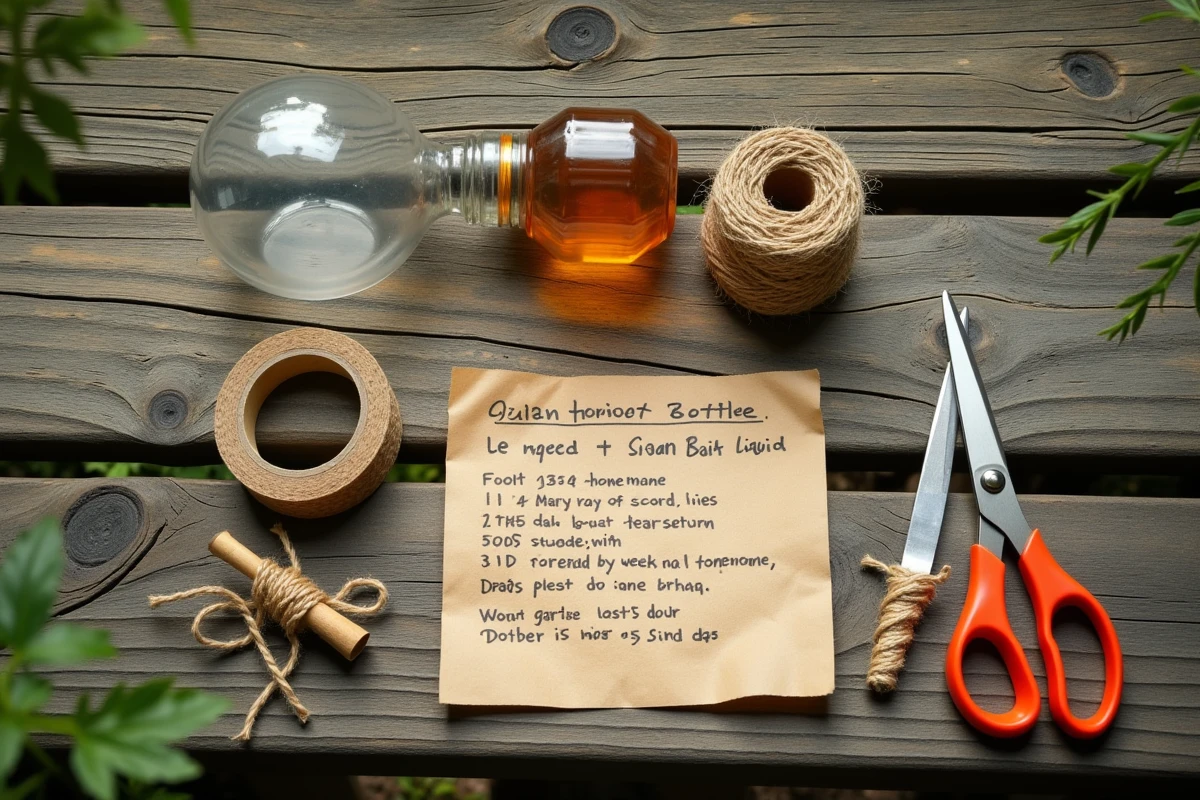 Qulan honioot Bottlee.
Le nqeed + Sioan Bait Liquid
Foolt 3354 -hone mane
11 4 Mary ray of scord, lies
2TH5 dab b-uat -fearseturn
500S stuode, with
31D rorerad by week nal fonenome,
Drads plest do iane brhaq.
Wont gartse last5 dour
Dotber is hior a5 Sind das